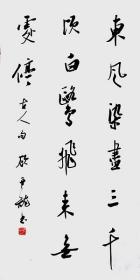 東風染盡三千
頃白鷺飛來無
處停 古人句